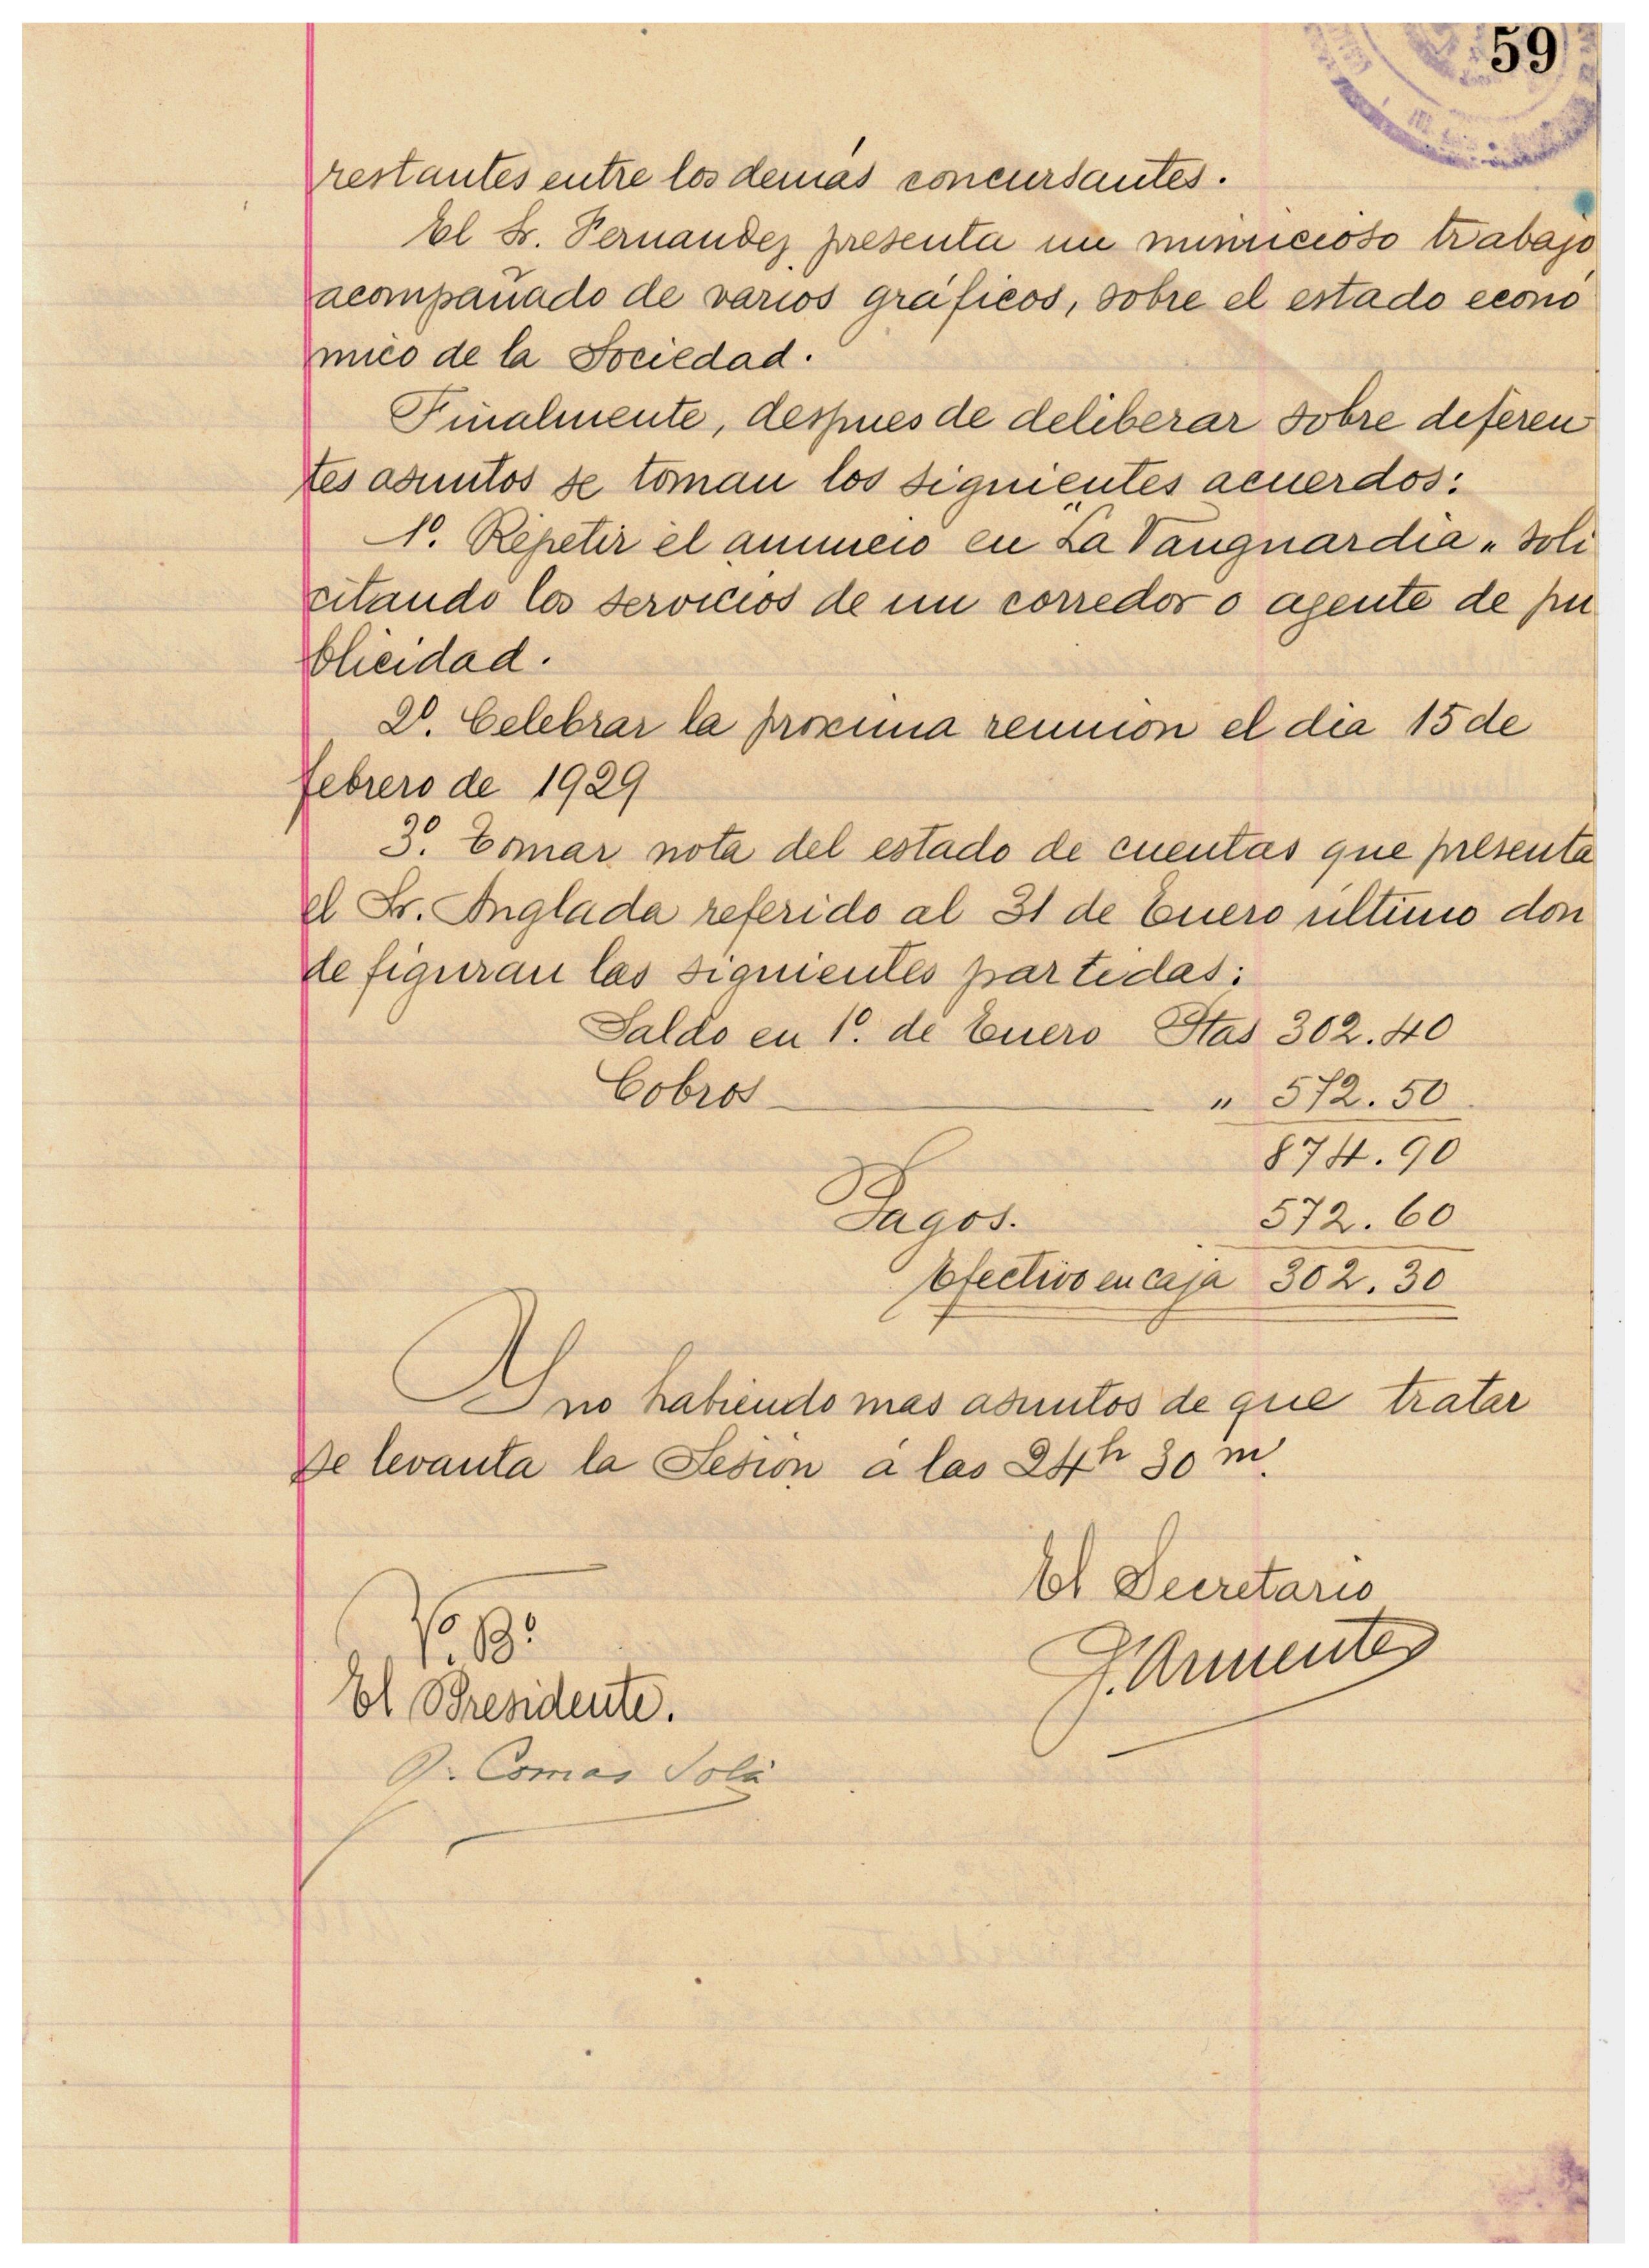 59
restantes entre los demás concursantes.
El Sr. Fernandez presenta un minucioso trabajo
acompañado de varios gráficos, sobre el estado econó
mico de la Sociedad.
Finalmente, despues de deliberar sobre diferen
tes asuntos se toman los siguientes acuerdos:
1º. Repetir el anuncio en "La Vanguardia" soli
citando los servicios de un corredor o agente de pu
blicidad.
2º. Celebrar la proxima reunion el dia 15 de
febrero de 1929
3º. Tomar nota del estado de cuentas que presenta
el Sr. Anglada referido al 31 de Enero ultimo don
de figuran las siguientes partidas:
Saldo en 1º. de Enero Ptas 302.40
Cobros " 572.50
874.90
Pagos. 572.60
Efectivo en caja 302.30
Y no habiendo mas asuntos de que tratar
se levanta la Sesión á las 24h 30 m.
El Secretario
Vº. Bº
J. Armenter
El Presidente.
J. Comas Solá